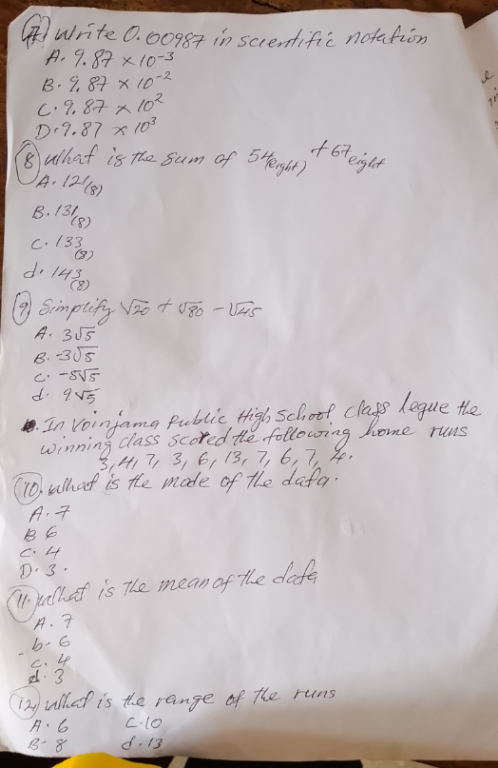 7. Write 0.00987 in scientific notation
A. 9.87 × 10⁻³
B. 9.87 × 10⁻²
C. 9.87 × 10²
D. 9.87 × 10³
8 What is the sum of 54(eight) + 67eight
A. 121(8)
B. 131(8)
C. 133(8)
d. 143(8)
9 Simplify √20 + √80 - √45
A. 3√5
B. -3√5
C. -8√5
d. 9√5
In Voinjama Public High School class legue the
winning class scored the following home runs
3, 4, 7, 3, 6, 13, 7, 6, 7, 4.
10. What is the mode of the data.
A. 7
B 6
C. 4
D. 3.
11. What is the mean of the data
A. 7
b. 6
C. 4
d. 3
12) What is the range of the runs
A. 6 C. 10
B. 8 d. 13